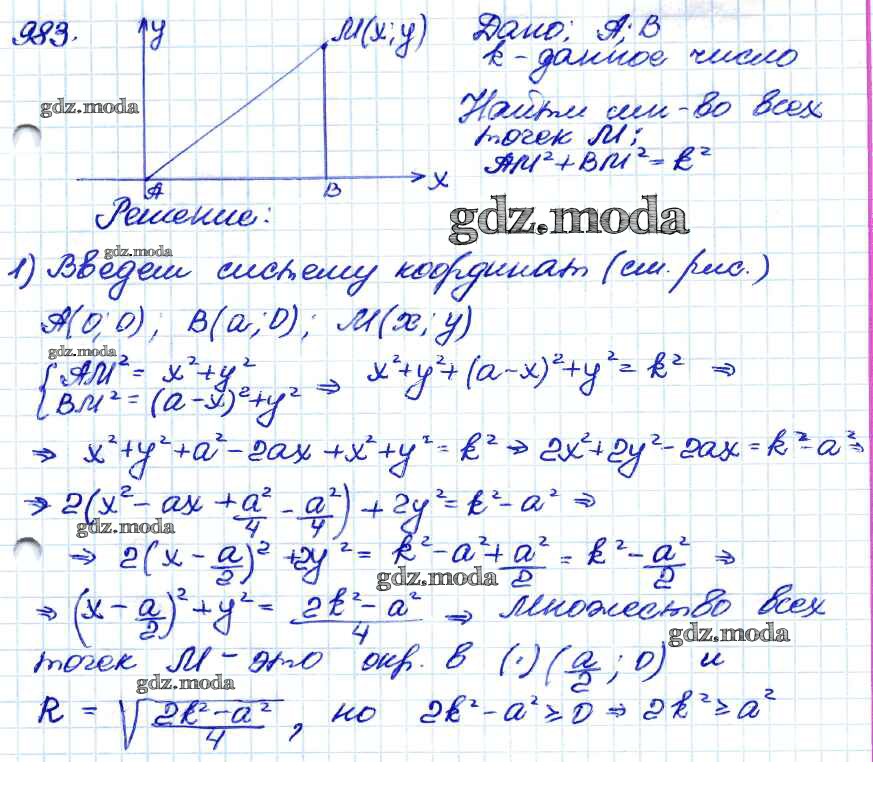 983.
y
M(x; y)
A
B
x
Дано: A; B
k - данное число
Найти мн-во всех
точек M:
AM² + BM² = k²
gdz.moda
Решение:
gdz.moda
gdz.moda
1) Введем систему координат (см. рис.)
A(0; 0); B(a; 0); M(x; y)
gdz.moda
{ AM² = x² + y²
BM² = (a-x)² + y² ⇒ x² + y² + (a-x)² + y² = k² ⇒
⇒ x² + y² + a² - 2ax + x² + y² = k² ⇒ 2x² + 2y² - 2ax = k² - a² ⇒
⇒ 2(x² - ax + a²/4 - a²/4) + 2y² = k² - a² ⇒
gdz.moda
⇒ 2(x - a/2)² + 2y² = k² - a² + a²/2 = k² - a²/2 ⇒
gdz.moda
⇒ (x - a/2)² + y² = (2k² - a²)/4 ⇒ Множество всех
gdz.moda
точек M - это окр. в (·) (a/2; 0) и
gdz.moda
R = √((2k² - a²)/4), но 2k² - a² ≥ 0 ⇒ 2k² ≥ a²